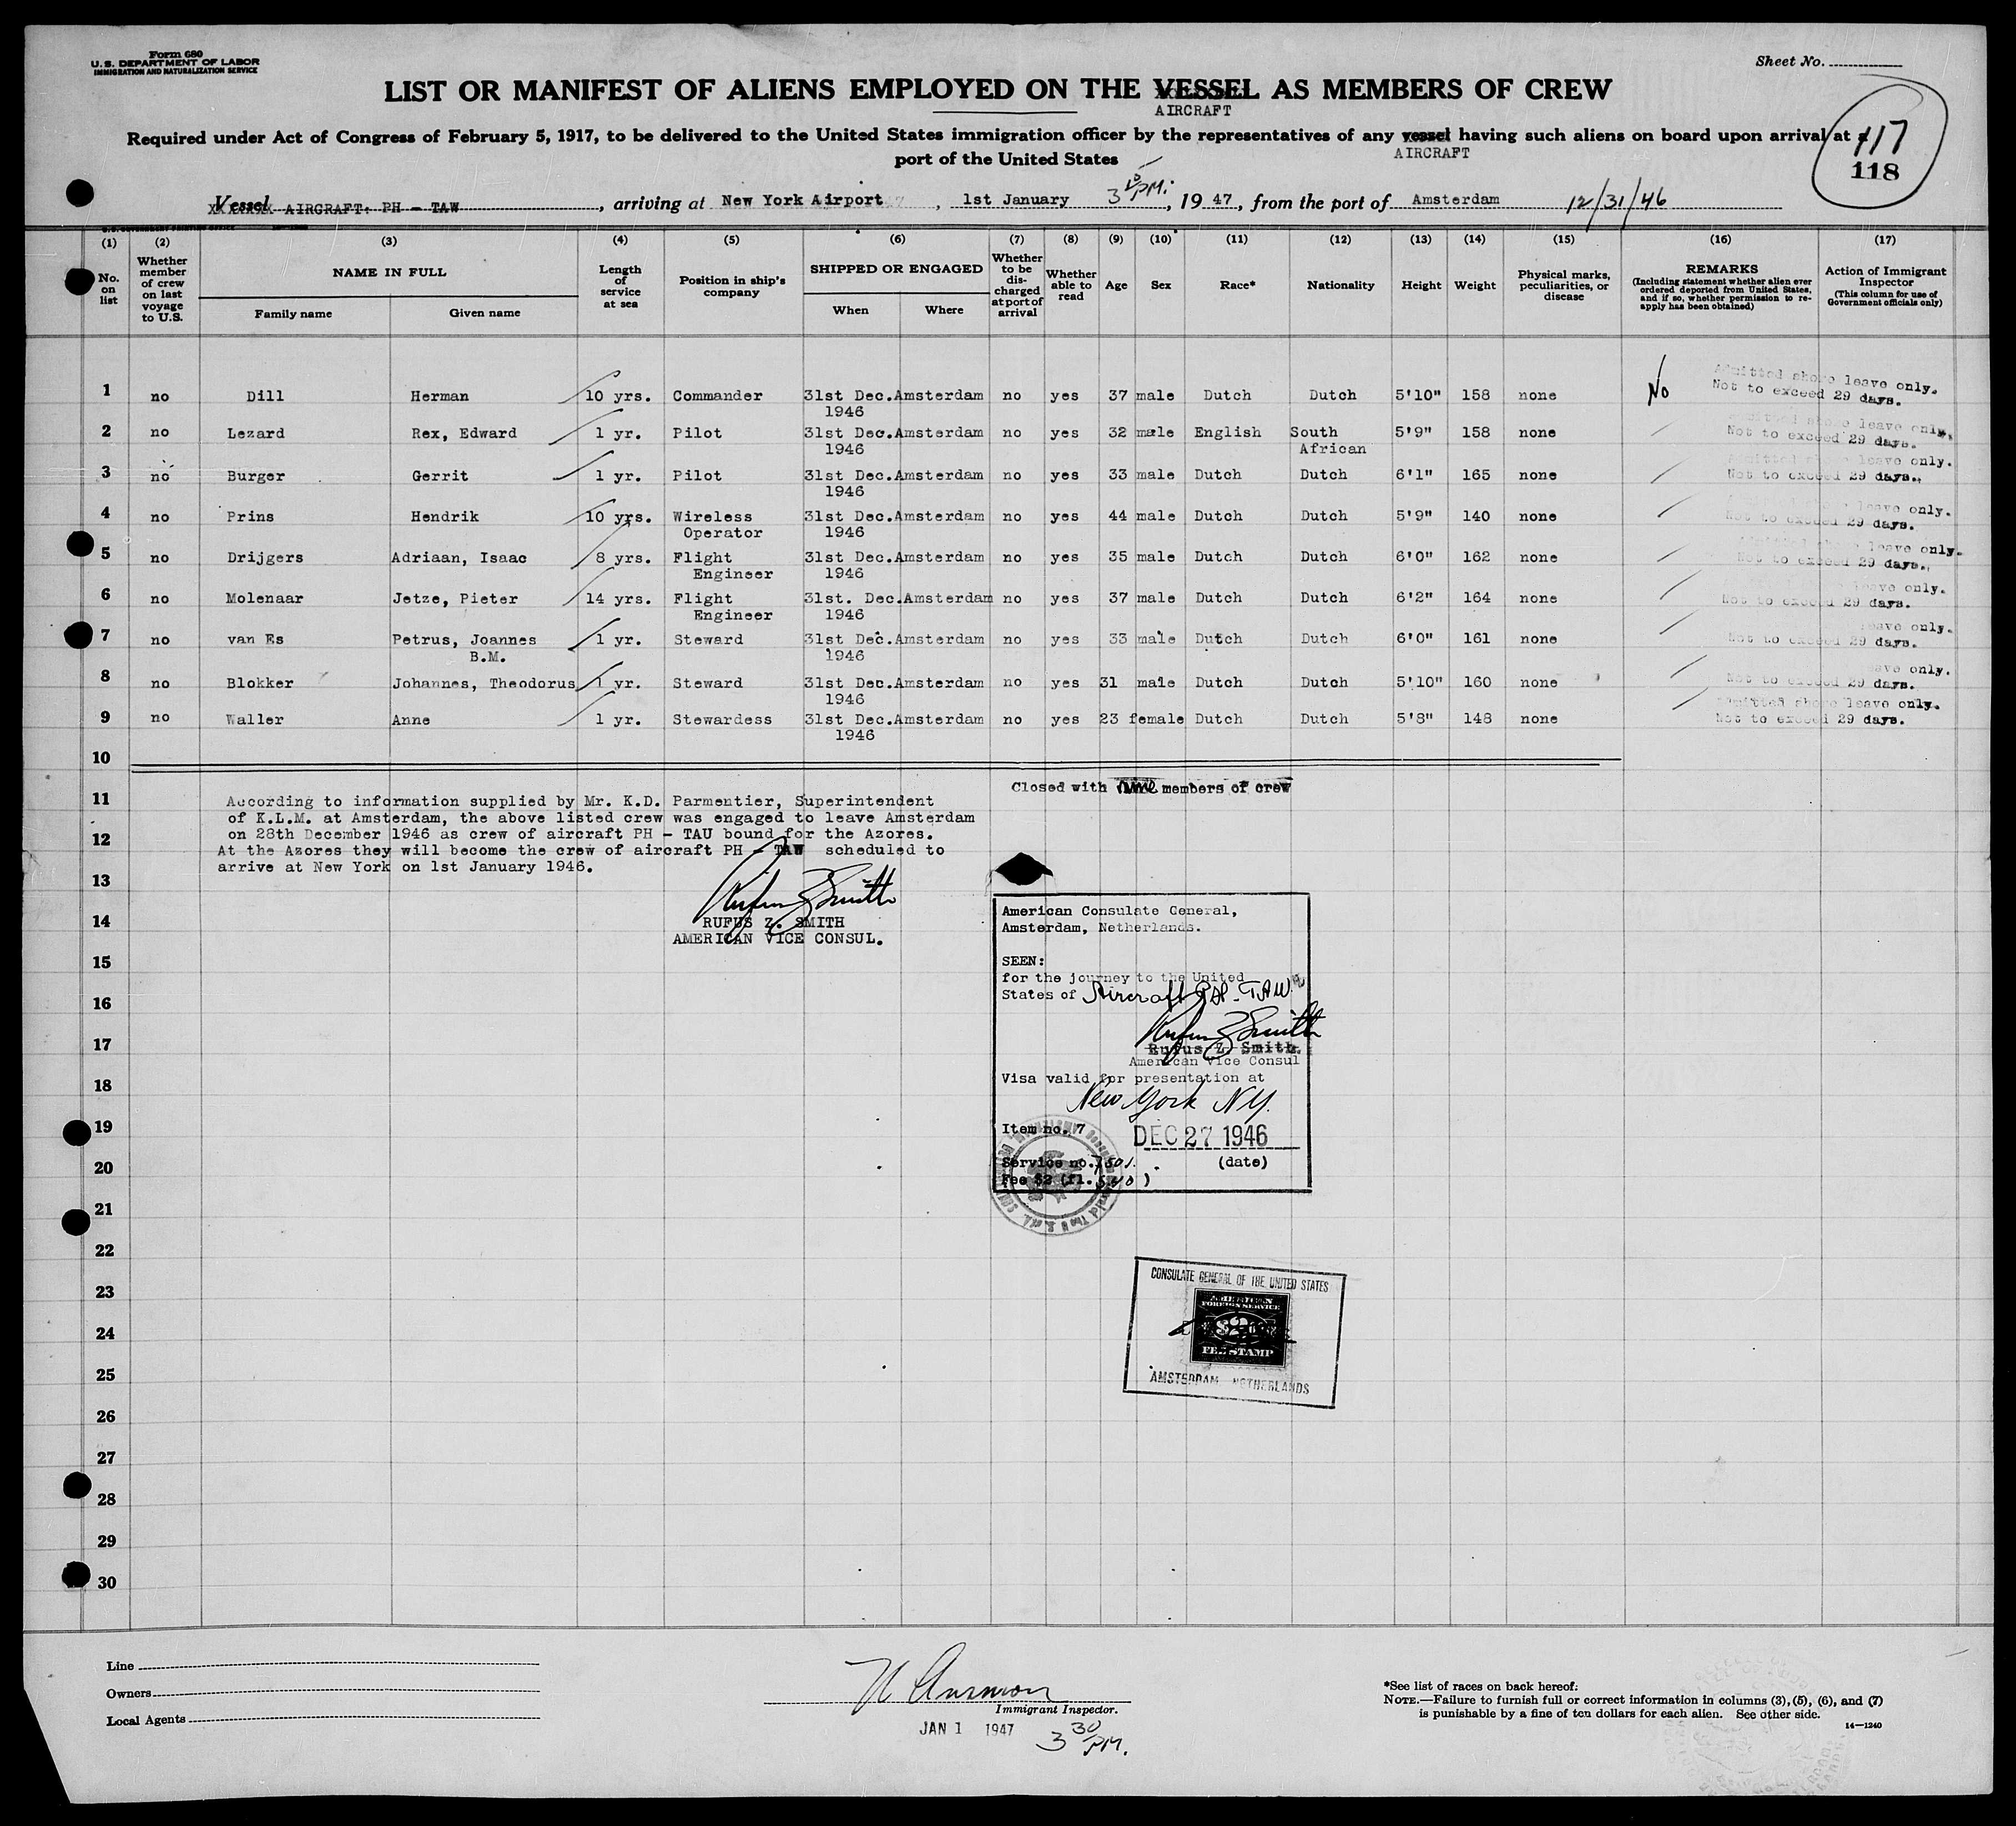 Form 680
U. S. DEPARTMENT OF LABOR
IMMIGRATION AND NATURALIZATION SERVICE
Sheet No.
LIST OR MANIFEST OF ALIENS EMPLOYED ON THE VESSEL AS MEMBERS OF CREW
AIRCRAFT
Required under Act of Congress of February 5, 1917, to be delivered to the United States immigration officer by the representatives of any vessel having such aliens on board upon arrival at a
AIRCRAFT
port of the United States
117
118
Vessel AIRCRAFT: PH - TAW, arriving at New York Airport, 1st January 3 15 PM, 19 47, from the port of Amsterdam 12/31/46
(1) (2) (3) (4) (5) (6) (7) (8) (9) (10) (11) (12) (13) (14) (15) (16) (17)
No. on list
Whether member of crew on last voyage to U.S.
NAME IN FULL
Family name Given name
Length of service at sea
Position in ship's company
SHIPPED OR ENGAGED
When Where
Whether to be discharged at port of arrival
Whether able to read
Age
Sex
Race*
Nationality
Height
Weight
Physical marks, peculiarities, or disease
REMARKS
(Including statement whether alien ever ordered deported from United States, and if so, whether permission to reapply has been obtained)
Action of Immigrant Inspector
(This column for use of Government officials only)
1 no Dill Herman 10 yrs. Commander 31st Dec. 1946 Amsterdam no yes 37 male Dutch Dutch 5'10" 158 none No Admitted shore leave only. Not to exceed 29 days.
2 no Lezard Rex, Edward 1 yr. Pilot 31st Dec. 1946 Amsterdam no yes 32 male English South African 5'9" 158 none Admitted shore leave only. Not to exceed 29 days.
3 no Burger Gerrit 1 yr. Pilot 31st Dec. 1946 Amsterdam no yes 33 male Dutch Dutch 6'1" 165 none Admitted shore leave only. Not to exceed 29 days.
4 no Prins Hendrik 10 yrs. Wireless Operator 31st Dec. 1946 Amsterdam no yes 44 male Dutch Dutch 5'9" 140 none leave only. Not to exceed 29 days.
5 no Drijgers Adriaan, Isaac 8 yrs. Flight Engineer 31st Dec. 1946 Amsterdam no yes 35 male Dutch Dutch 6'0" 162 none leave only. Not to exceed 29 days.
6 no Molenaar Jetze, Pieter 14 yrs. Flight Engineer 31st. Dec. 1946 Amsterdam no yes 37 male Dutch Dutch 6'2" 164 none leave only. Not to exceed 29 days.
7 no van Es Petrus, Joannes B.M. 1 yr. Steward 31st Dec. 1946 Amsterdam no yes 33 male Dutch Dutch 6'0" 161 none leave only. Not to exceed 29 days.
8 no Blokker Johannes, Theodorus 1 yr. Steward 31st Dec. 1946 Amsterdam no yes 31 male Dutch Dutch 5'10" 160 none leave only. Not to exceed 29 days.
9 no Waller Anne 1 yr. Stewardess 31st Dec. 1946 Amsterdam no yes 23 female Dutch Dutch 5'8" 148 none Admitted shore leave only. Not to exceed 29 days.
10
Closed with nine members of crew
11
According to information supplied by Mr. K.D. Parmentier, Superintendent
of K.L.M. at Amsterdam, the above listed crew was engaged to leave Amsterdam
12
on 28th December 1946 as crew of aircraft PH - TAU bound for the Azores.
At the Azores they will become the crew of aircraft PH - TAW scheduled to
arrive at New York on 1st January 1946.
13
Rufus Z Smith
14
RUFUS Z. SMITH
AMERICAN VICE CONSUL.
American Consulate General,
Amsterdam, Netherlands.
15
SEEN:
for the journey to the United
16
States of Aircraft PH-TAW
Rufus Z Smith
17
Rufus Z. Smith.
American Vice Consul
18
Visa valid for presentation at
New York N.Y.
19
Item no. 7 DEC 27 1946
20
Service no. 7501. (date)
Fee $2 (fl. 5.40)
21
22
23
CONSULATE GENERAL OF THE UNITED STATES
AMERICAN
FOREIGN SERVICE
24
$2
FEE STAMP
25
AMSTERDAM NETHERLANDS
26
27
28
29
30
Line
Owners
Local Agents
Immigrant Inspector.
JAN 1 1947
3 30 PM.
*See list of races on back hereof.
NOTE.—Failure to furnish full or correct information in columns (3), (5), (6), and (7)
is punishable by a fine of ten dollars for each alien. See other side.
14—1240